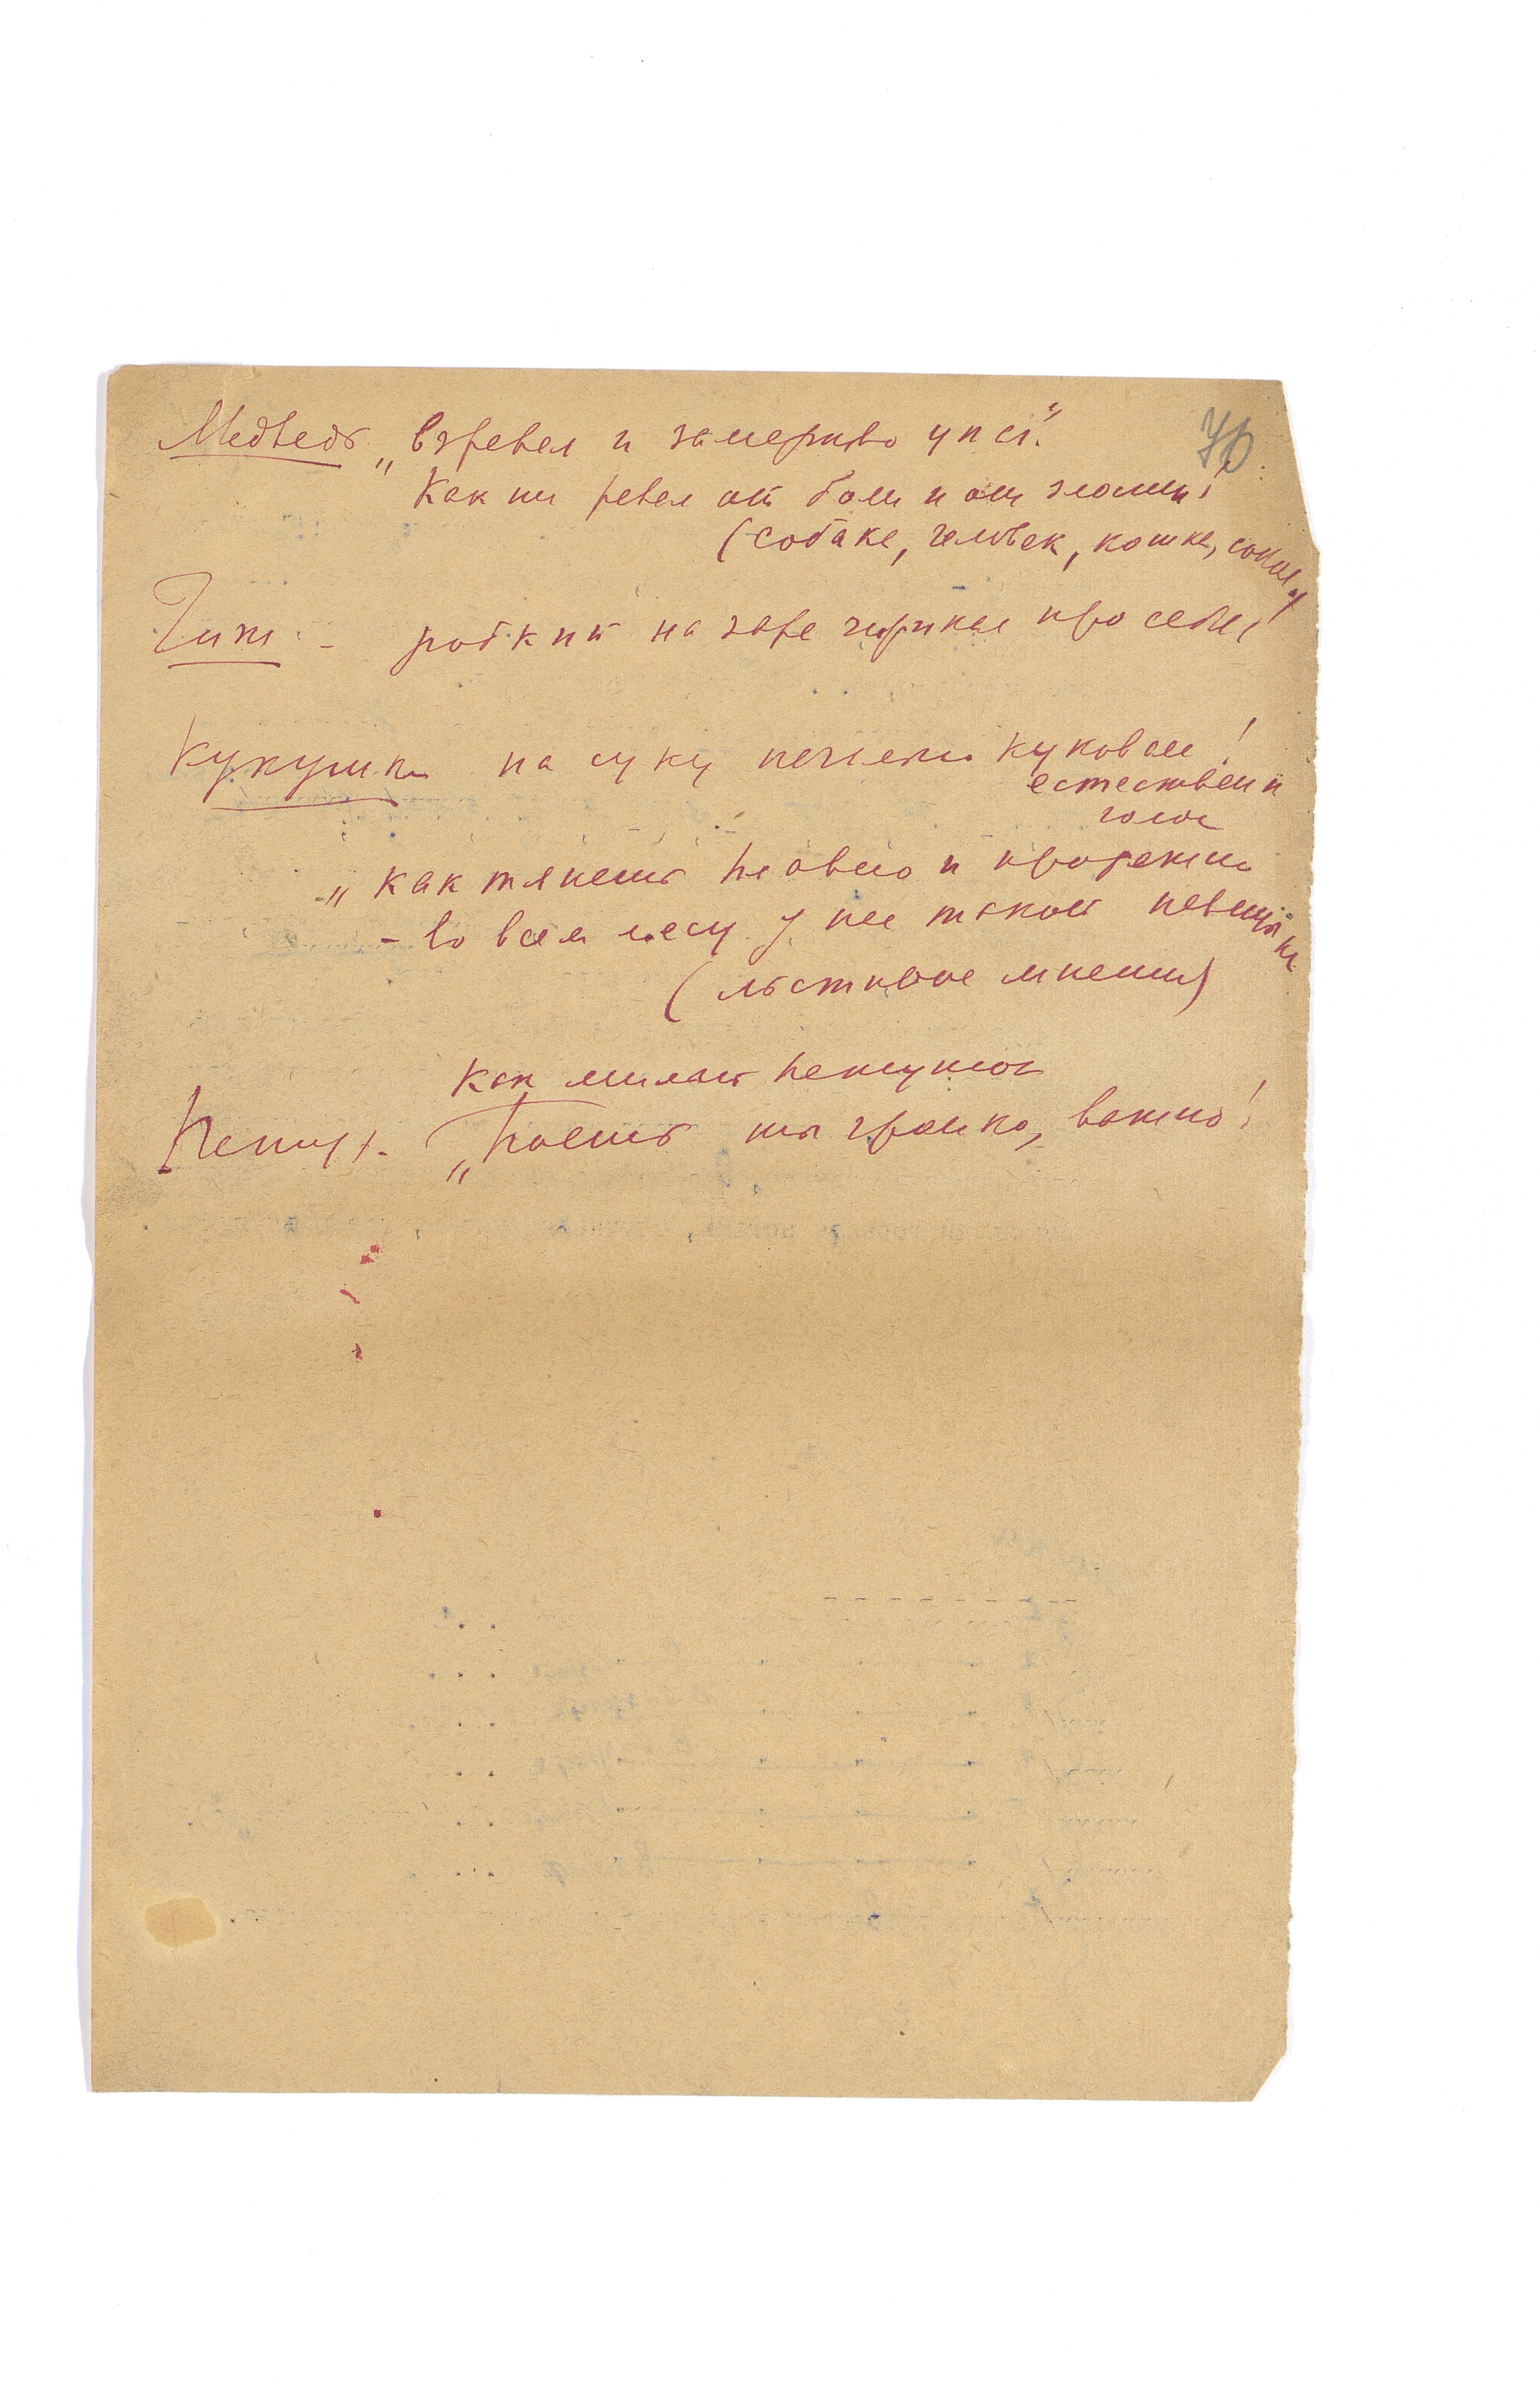 70
Медведь „взревел и замертво упал."
Как ни ревел от боли и от злости!
(собаке, человек, кошке,
Чиж - робкий на заре чирикал про себя!
Кукушка на суку печально куковала!
естественн
голос
„как тянешь плавно и протяжно
- во всем лесу у нас такой певицы нет
(льстивое мнение)
Как милый петушок
Петух. „Поешь ты громко, важно!